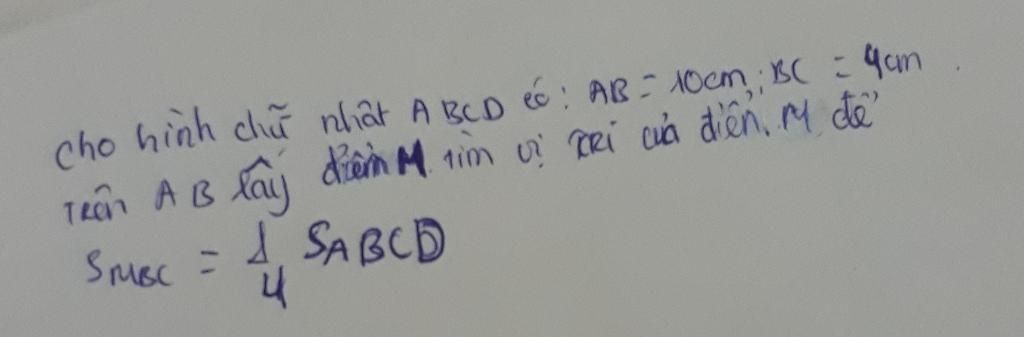 cho hình chữ nhật ABCD có: AB = 10cm; BC = 4cm.
Trên AB lấy điểm M. tìm vị trí của điểm M để
SMBC = 1/4 SABCD